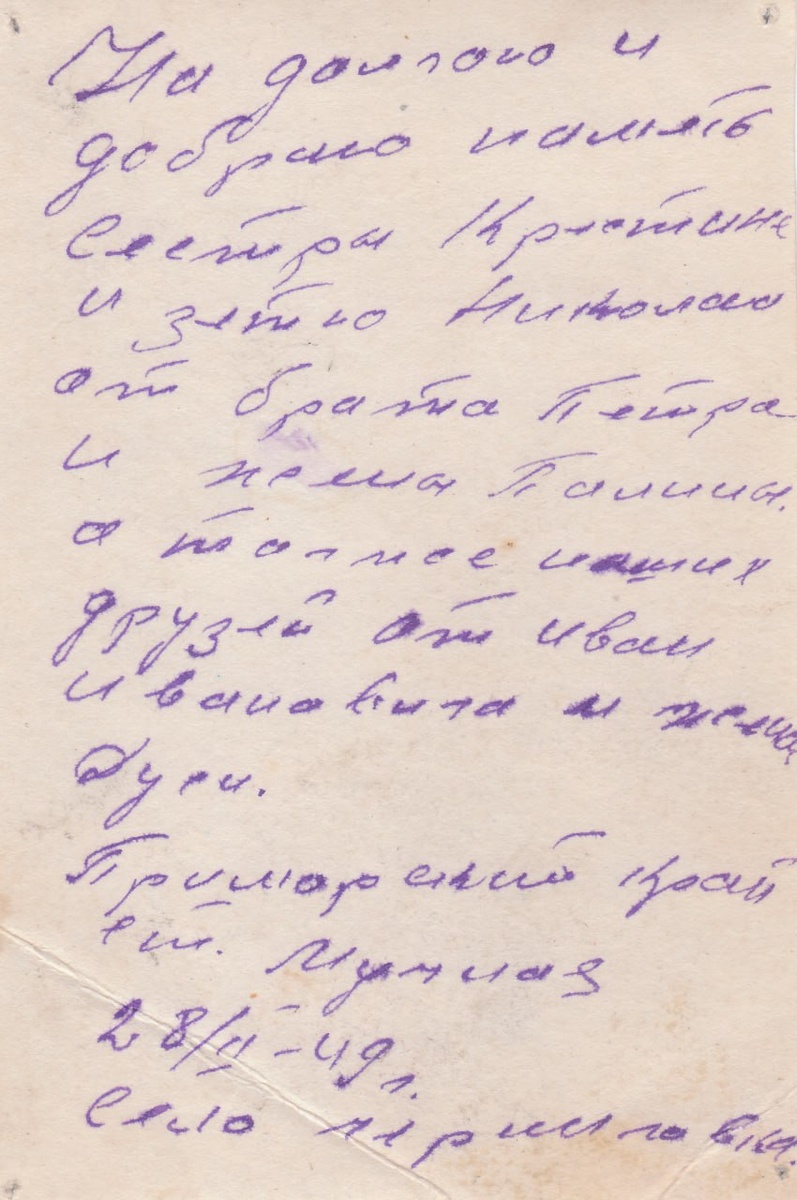 На долгою и
добраю память
Сестры Кристине
и зетю Николаю
от брата Петра
и жены Палины.
а точнее наших
друзей от Иван
Ивановича и жены
Дуси.
Приморский край
ст. Мучная
28/II-49 г.
Село Черниговка.